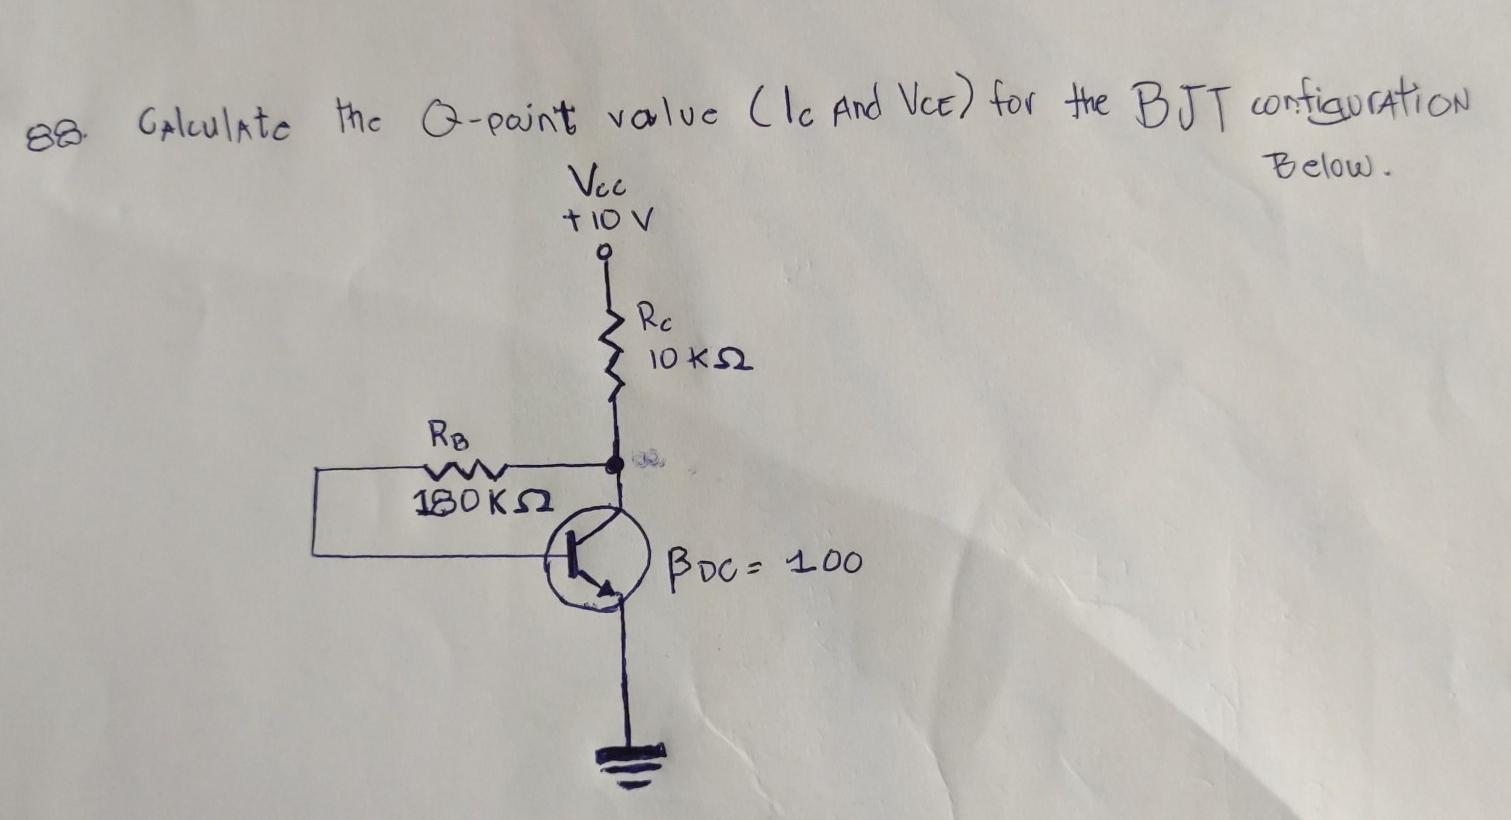 88. Calculate the Q-point value (Ic And VCE) for the BJT configuration
Below.
Vcc
+10 V
Rc
10 KΩ
RB
180KΩ
βDC = 100